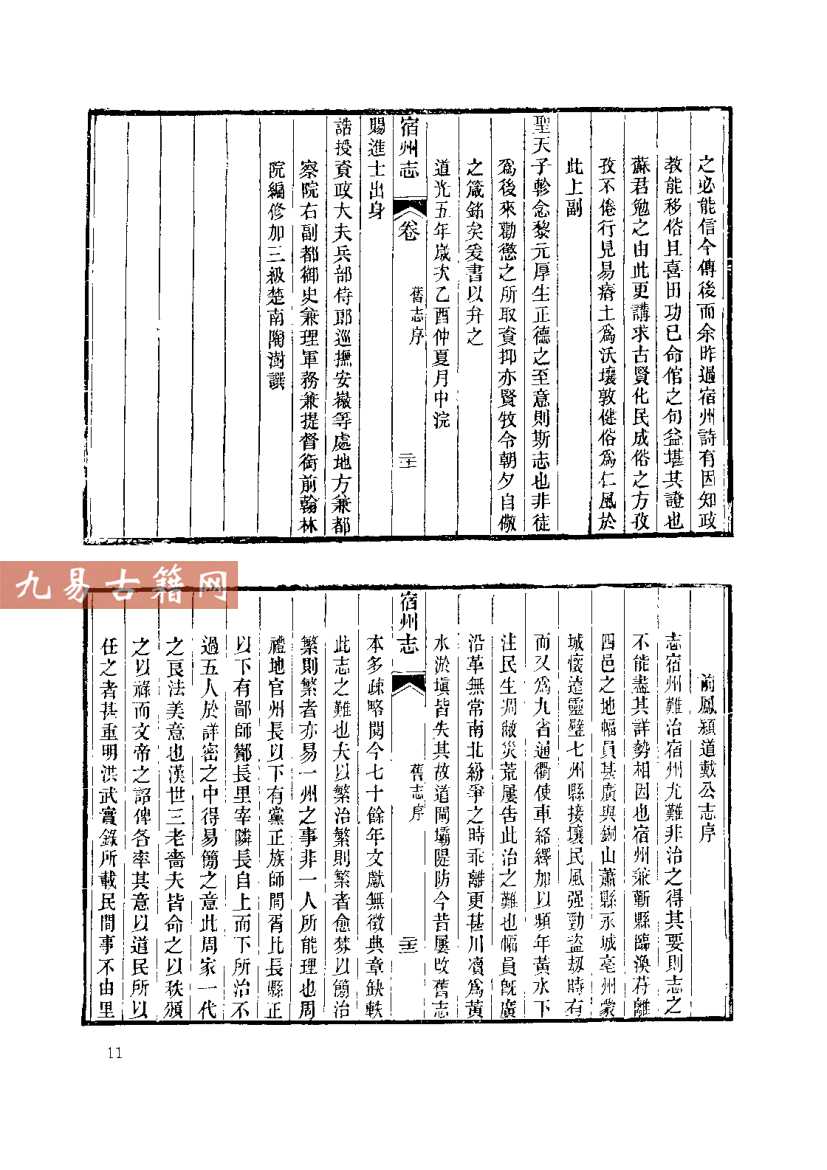 之必能信今傳後而余昨過宿州詩有因知政
教能移俗且喜田功已命倌之句益堪其證也
蘇君勉之由此更講求古賢化民成俗之方孜
孜不倦行見易瘠土為沃壤敦倕俗為仁風於
此上副
聖天子軫念黎元厚生正德之至意則斯志也非徒
為後來勸懲之所取資抑亦賢牧令朝夕自儆
之箴銘矣爰書以弁之
道光五年歲次乙酉仲夏月中浣
宿州志
卷
舊志序
二十二
賜進士出身
誥授資政大夫兵部侍郎巡撫安徽等處地方兼都
察院右副都御史兼理軍務兼提督銜前翰林
院編修加三級楚南陶澍譔
九易古籍网
前鳳潁道戴公志序
志宿州難治宿州尤難非治之得其要則志之
不能盡其詳勢相因也宿州兼蘄縣臨渙苻離
四邑之地幅員甚廣與銅山蕭縣永城亳州蒙
城懷遠靈璧七州縣接壤民風强勁盜刼時有
而又為九省通衢使車絡繹加以頻年黃水下
注民生凋敝災荒屢告此治之難也幅員旣廣
沿革無常南北紛爭之時乖離更甚川瀆為黃
水淤塡皆失其故道閘壩隄防今昔屢改舊志
宿州志
舊志序
二十三
本多疎略閱今七十餘年文獻無徵典章缺軼
此志之難也夫以繁治繁則繁者愈棼以簡治
繁則繁者亦易一州之事非一人所能理也周
禮地官州長以下有黨正族師閭胥比長縣正
以下有鄙師酇長里宰隣長自上而下所治不
過五人於詳密之中得易簡之意此周家一代
之良法美意也漢世三老嗇夫皆命之以秩頒
之以祿而文帝之詔俾各率其意以道民所以
任之者甚重明洪武實錄所載民間事不由里
11